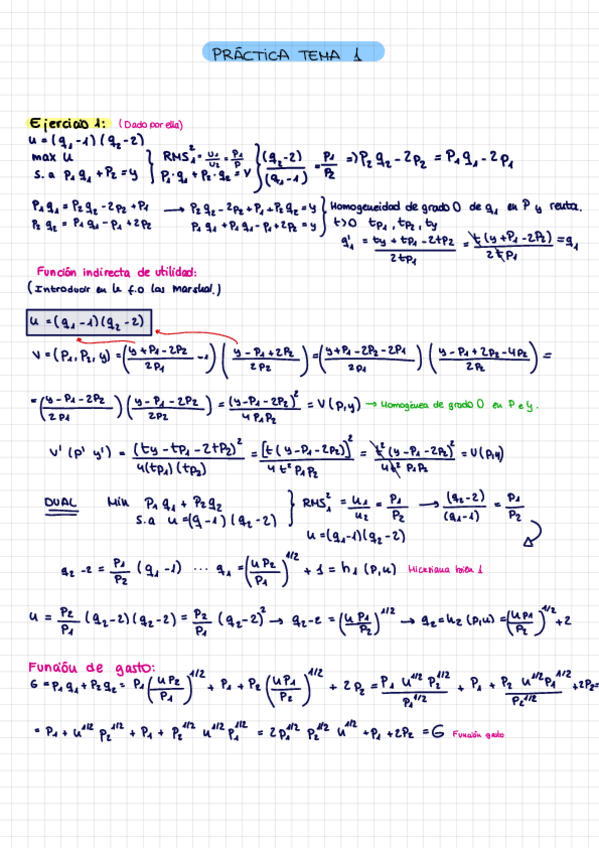 PRÁCTICA TEMA 1
Ejercicio 1: (Dado por ella)
u = (q₁ -1) (q₂ -2)
max u } RMS₁² = u₁/u₂ = P₁/P₂ } (q₂-2)/(q₁-1) = P₁/P₂ => P₂q₂ - 2P₂ = P₁q₁ - 2P₁
s.a P₁q₁ + P₂ = y } P₁·q₁ + P₂·q₂ = Y
P₁q₁ = P₂q₂ - 2P₂ + P₁ → P₂q₂ - 2P₂ + P₁ + P₂q₂ = y } Homogeneidad de grado 0 de q₁ en P y renta.
P₂q₂ = P₁q₁ - P₁ + 2P₂ P₁q₁ + P₁q₁ - P₁ + 2P₂ = y } t>0 tP₁, tP₂, ty
q₁' = (ty + tP₁ - 2tP₂)/(2tP₁) = t(y + P₁ - 2P₂)/(2tP₁) = q₁
Función indirecta de utilidad:
(Introducir en la f.o las Marshal.)
u = (q₁ -1) (q₂ -2)
V = (P₁, P₂, y) = ((y + P₁ - 2P₂)/(2P₁) - 1) ((y - P₁ + 2P₂)/(2P₂)) = ((y + P₁ - 2P₂ - 2P₁)/(2P₁)) ((y - P₁ + 2P₂ - 4P₂)/(2P₂)) =
= ((y - P₁ - 2P₂)/(2P₁)) ((y - P₁ - 2P₂)/(2P₂)) = (y - P₁ - 2P₂)²/(4P₁P₂) = V(P,y) → Homogénea de grado 0 en P e y.
V'(P' y') = (ty - tP₁ - 2tP₂)²/(4(tP₁)(tP₂)) = [t(y - P₁ - 2P₂)]²/(4t²P₁P₂) = t²(y - P₁ - 2P₂)²/(4t²P₁P₂) = V(P,y)
DUAL Min P₁q₁ + P₂q₂ } RMS₁² = u₁/u₂ = P₁/P₂ → (q₂-2)/(q₁-1) = P₁/P₂
s.a u = (q-1)(q₂-2) } u = (q₁-1)(q₂-2)
q₂ - 2 = P₁/P₂ (q₁ -1) ... q₁ = (uP₂/P₁)^1/2 + 1 = h₁(P,u) Hicksiana bien 1
u = P₂/P₁ (q₂-2)(q₂-2) = P₂/P₁ (q₂-2)² → q₂-2 = (uP₁/P₂)^1/2 → q₂ = h₂(P,u) = (uP₁/P₂)^1/2 + 2
Función de gasto:
G = P₁q₁ + P₂q₂ = P₁(uP₂/P₁)^1/2 + P₁ + P₂(uP₁/P₂)^1/2 + 2P₂ = P₁u^1/2P₂^1/2/P₁^1/2 + P₁ + P₂u^1/2P₁^1/2/P₂^1/2 + 2P₂ =
= P₁ + u^1/2 P₂^1/2 + P₁ + P₂^1/2 u^1/2 P₁^1/2 = 2P₁^1/2 P₂^1/2 u^1/2 + P₁ + 2P₂ = G Función gasto